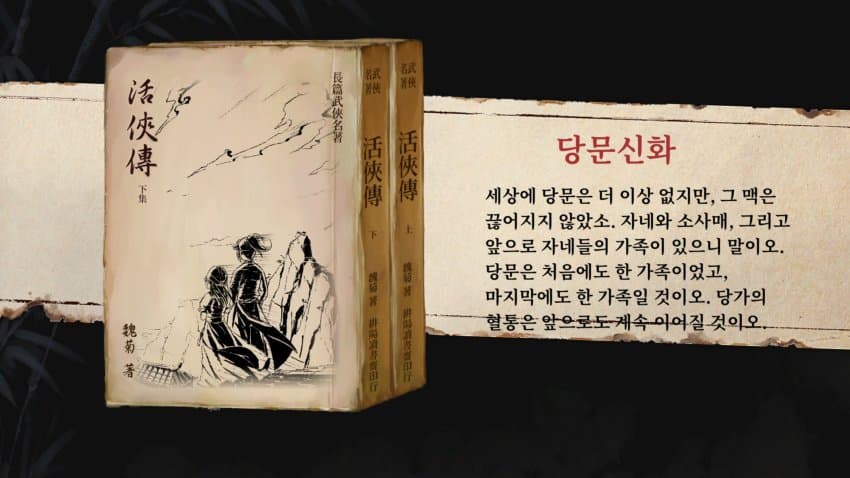 活俠傳
下集
魏菊 著
長篇武俠名著
武俠名著
活俠傳
下
魏菊 著
武俠名著
活俠傳
上
魏菊 著
당문신화
세상에 당문은 더 이상 없지만, 그 맥은
끊어지지 않았소. 자네와 소사매, 그리고
앞으로 자네들의 가족이 있으니 말이오.
당문은 처음에도 한 가족이었고,
마지막에도 한 가족일 것이오. 당가의
혈통은 앞으로도 계속 이어질 것이오.